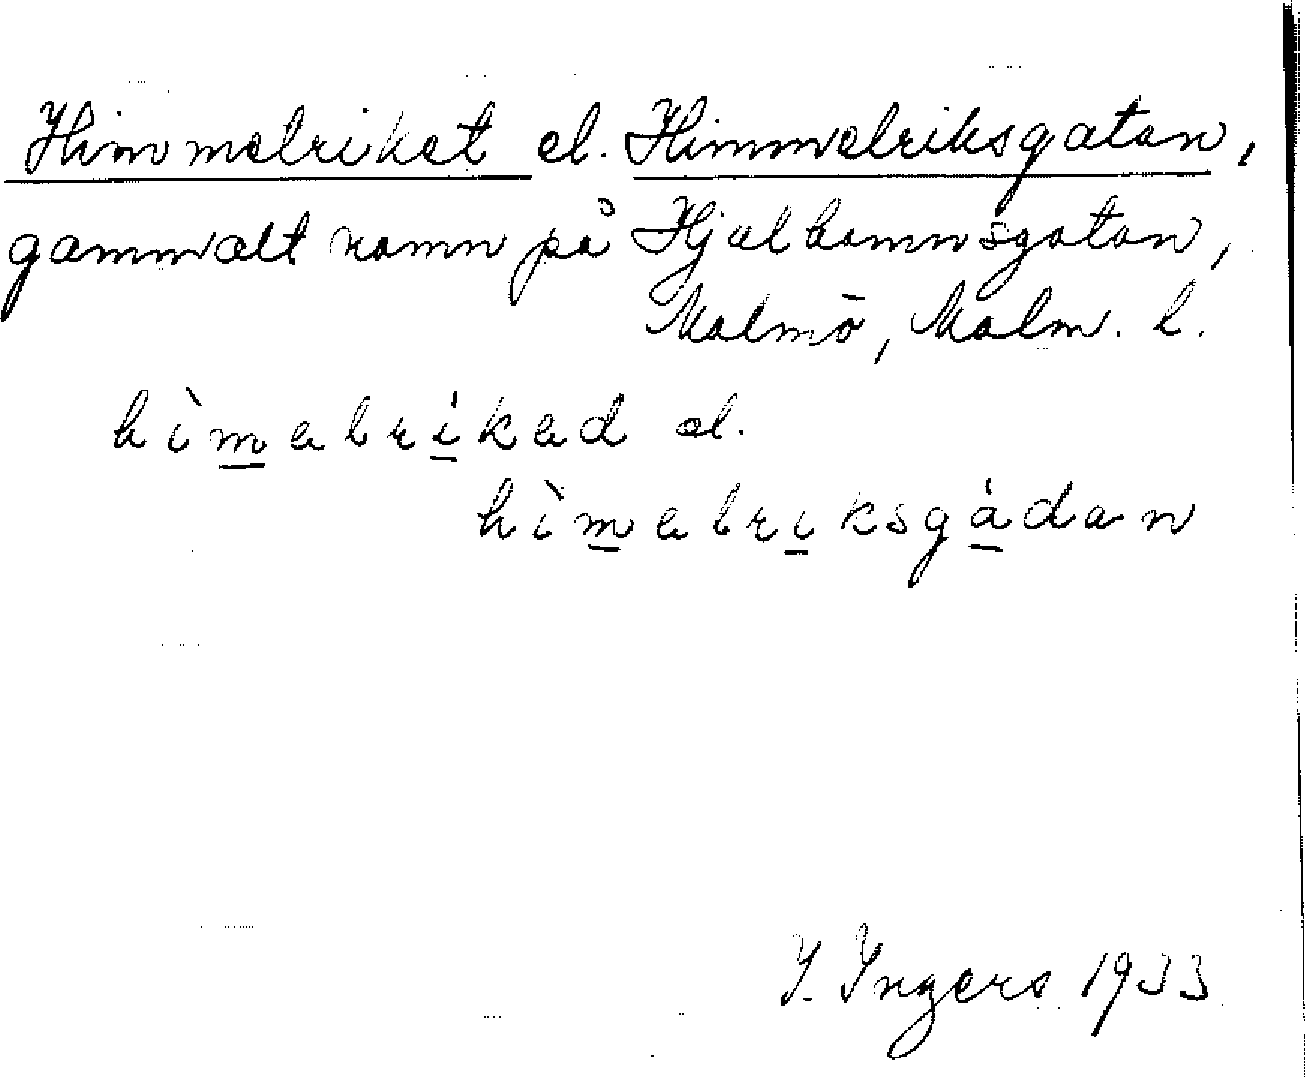 Himmelriket el. Himmelriksgatan,
gammalt namn på Hjälhamnsgatan,
Malmö, Malm. l.
hìmalríkad el.
hìmalriksgádan
I. Ingers 1933